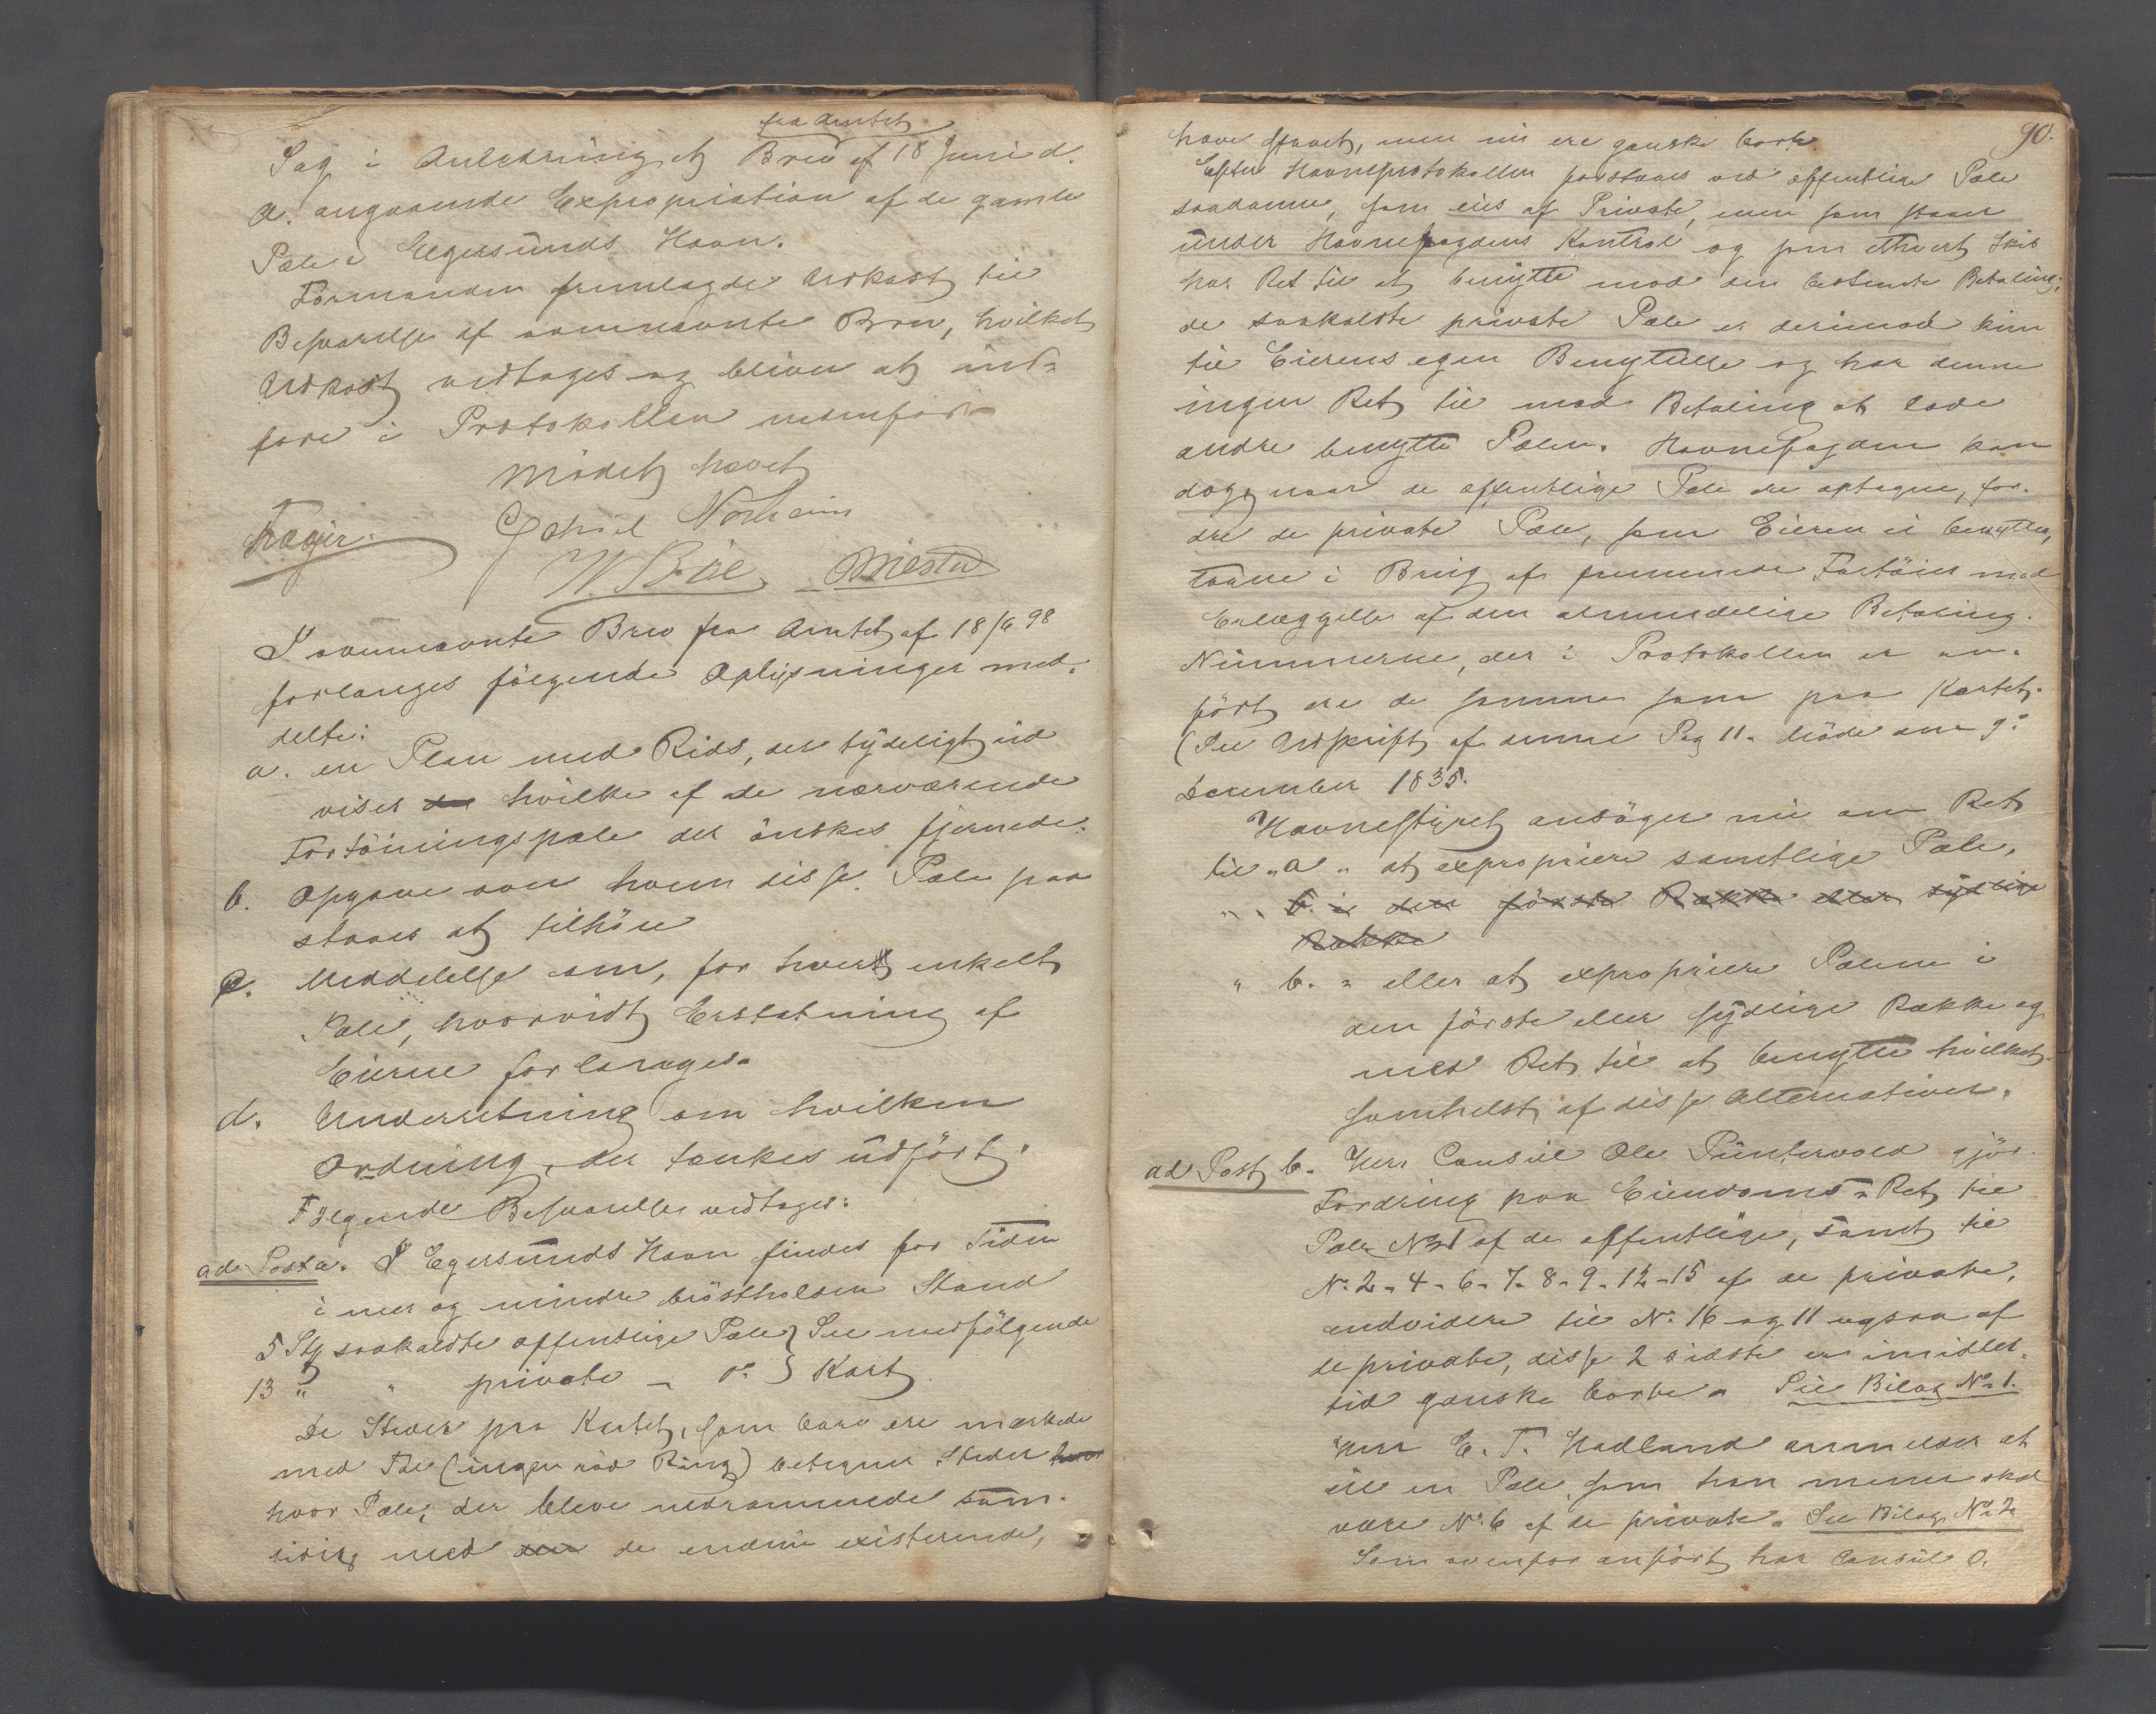 fra Amtet
Sag i Anledning af Brev af 18 Juni d.
A. angaaende Expropriation af de gamle
Pæle i Egersunds Havn.
Formanden fremlagde Udkast til
Besvarelse af ovennævnte Brev, hvilket
Udkast vedtages og bliver at ind-
føre i Protokollen nedenfor
Mødet hævet
Feyer. Gabriel Nørheim
W Böe
I ovennævnte Brev fra Amtet af 18/6 98
forlanges følgende Oplysninger med-
delte:
a. en Plan med Rids, der tydeligt ud
viser de hvilke af de nærværende
Fortøiningspæle der ønskes fjernede.
b. Opgave over hvem disse Pæle paa
staaes at tilhøre
c. Meddelelse om, for hvert enkelt
Pæle, hvorvidt Erstatning af
Eierne forlanges.
d. Underretning om hvilken
Ordning, der tænkes udført.
Følgende Besvarelse vedtages:
ad Post a. I Egersunds Havn findes for Tiden
i mer og mindre brøstholden Stand
5 Stk saakaldte offentlige Pæle } See medfølgende
13 " " private - do } Kart
De Steder paa Kartet, som bare ere mærkede
med Pæle (ingen rød Ring) betegner Steder hvor
hvor Pæle, der bleve nedrammede sam-
tidig med den de endnu existerende,
90.
have staaet, men nu ere ganske borte.
Efter Havneprotokollen forstaaes ved offentlige Pæle
saadanne, som eies af Private, men som staaer
under Havnefogdens Kontrol og som ethvert Skib
har Ret til at benytte mod den bestemte Betaling;
de saakaldte private Pæle er derimod kun
til Eierens egen Benyttelse og har denne
ingen Ret til mod Betaling at lade
andre benytte Pælen. Havnefogden kan
dog, naar de offentlige Pæle ere optagne, for-
dre de private Pæle, som Eieren ei benytter,
tagne i Brug af fremmede Fartøier mod
Erlæggelse af den almindelige Betaling.
Nummerne, der i Protokollen er an-
ført ere de samme som paa Kartet.
(See Udskrift af denne Pag 11. Møde den 9de
December 1835.
Havnestyret ansøger nu om Ret
til "a" at expropriere samtlige Pæle,
" " b. i den første Række eller sydlige
Række
" b. " eller at expropriere Pælene i
den første eller sydlige Række og
med Ret til at benytte hvilket-
somhelst af disse Alternativer.
ad Post b. Herr Consul Ole Puntervold gjør
Fordring paa Eiendoms-Ret til
Pæle No 1 af de offentlige, samt til
No 2 - 4 - 6 - 7 - 8 - 9 - 12 - 15 af de private,
endvidere til No 16 og 11 ogsaa af
de private, disse 2 sidste er imidler-
tid ganske borte. See Bilag No 1.
Herr E. T. Hadland anmelder at
eie en Pæle, som han mener skal
være No 6 af de private. See Bilag No 2
Som ovenfor anført har Consul O.